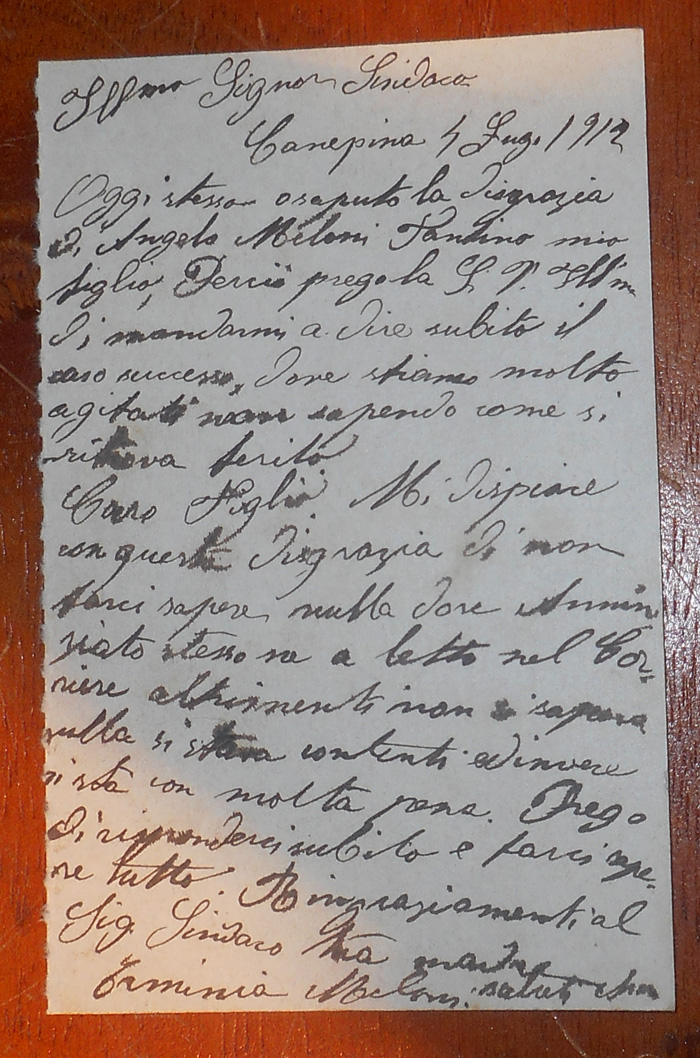 Illmo Signor Sindaco
Canepina 4 Lug. 1912
Oggi stesso o saputo la disgrazia
di Angelo Meloni Fantino mio
figlio, Perciò prego la S. V. Ill'm
di mandarmi a dire subito il
caso successo, dove stiamo molto
agitati non sapendo come si
ritrova ferito
Caro Figlio Mi dispiace
con questa disgrazia di non
farci sapere nulla dove Annun
ziato stesso a letto nel Cor-
riere altrimenti non si sapeva
nulla si stava contenti ed invece
si stà con molta pena. Prego
di risponderci subito e farci sape-
re tutto. Ringraziamenti al
Sig. Sindaco tua madre
Erminia Meloni. saluti